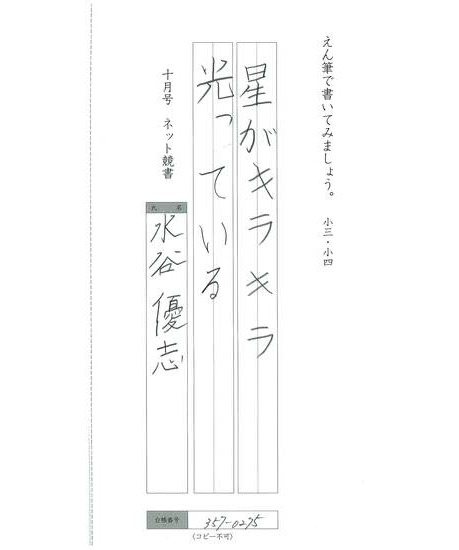 えん筆で書いてみましょう。 小三・小四
星がキラキラ
光っている
十月号 ネット競書
氏名
水谷優志
台帳番号 357-0275
(コピー不可)